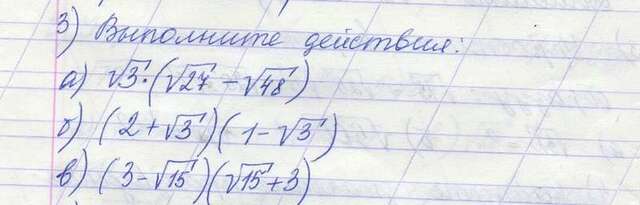 3) Выполните действия:
а) √3·(√27 − √48)
б) (2+√3)(1−√3)
в) (3−√15)(√15+3)